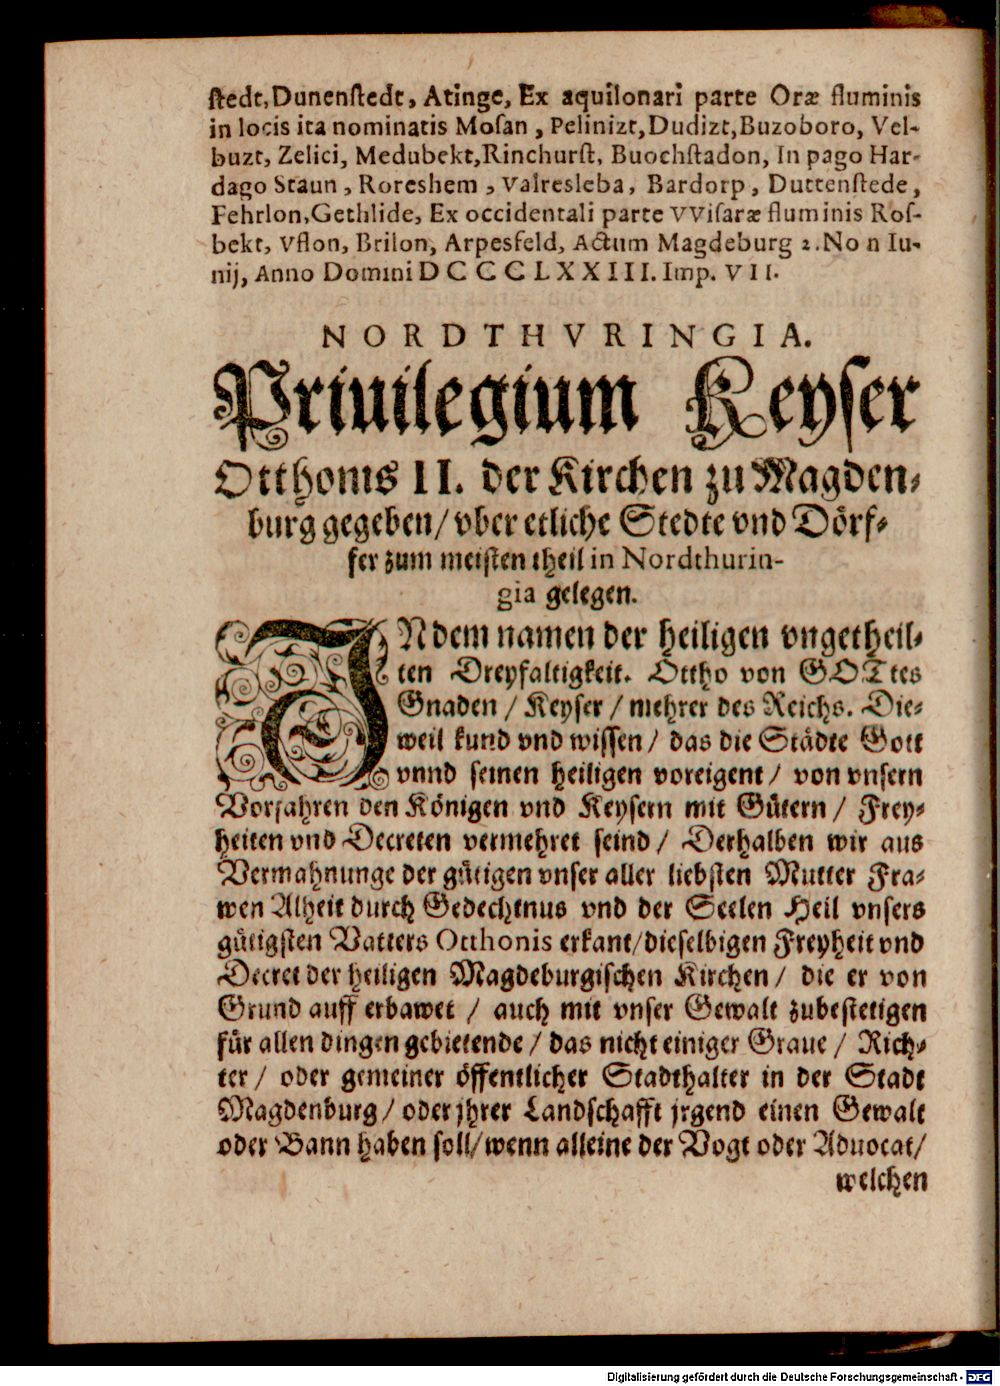 ſtedt, Dunenſtedt, Atinge, Ex aquilonari parte Oræ fluminis
in locis ita nominatis Moſan, Pelinizt, Dudizt, Buzoboro, Vel-
buzt, Zelici, Medubekt, Rinchurſt, Buochſtadon, In pago Har-
dago Staun, Roreshem, Valresleba, Bardorp, Duttenſtede,
Fehrlon, Gethlide, Ex occidentali parte VViſaræ fluminis Roſ-
bekt, Vflon, Brilon, Arpesfeld, Actum Magdeburg 2. No n Iu-
nij, Anno Domini D C C C C L X X I I I. Imp. V I I.
NORDTHVRINGIA.
Priuilegium Keyſer
Otthonis II. der Kirchen zu Magden-
burg gegeben / vber etliche Stedte vnd Dörf-
fer zum meiſten theil in Nordthurin-
gia gelegen.
IN dem namen der heiligen vngetheil-
ten Dreyfaltigkeit. Ottho von GOTtes
Gnaden / Keyſer / mehrer des Reichs. Die-
weil kund vnd wiſſen / das die Städte Gott
vnnd ſeinen heiligen voreigent / von vnſern
Vorfahren den Königen vnd Keyſern mit Gütern / Frey-
heiten vnd Decreten vermehret ſeind / Derhalben wir aus
Vermahnunge der gütigen vnſer aller liebſten Mutter Fra-
wen Alheit durch Gedechtnus vnd der Seelen Heil vnſers
gütigſten Vatters Otthonis erkant / dieſelbigen Freyheit vnd
Decret der heiligen Magdeburgiſchen Kirchen / die er von
Grund auff erbawet / auch mit vnſer Gewalt zubeſtetigen
für allen dingen gebietende / das nicht einiger Graue / Rich-
ter / oder gemeiner öffentlicher Stadthalter in der Stadt
Magdenburg / oder jhrer Landſchafft jrgend einen Gewalt
oder Bann haben ſoll / wenn alleine der Vogt oder Aduocat /
welchen
Digitalisierung gefördert durch die Deutsche Forschungsgemeinschaft - DFG